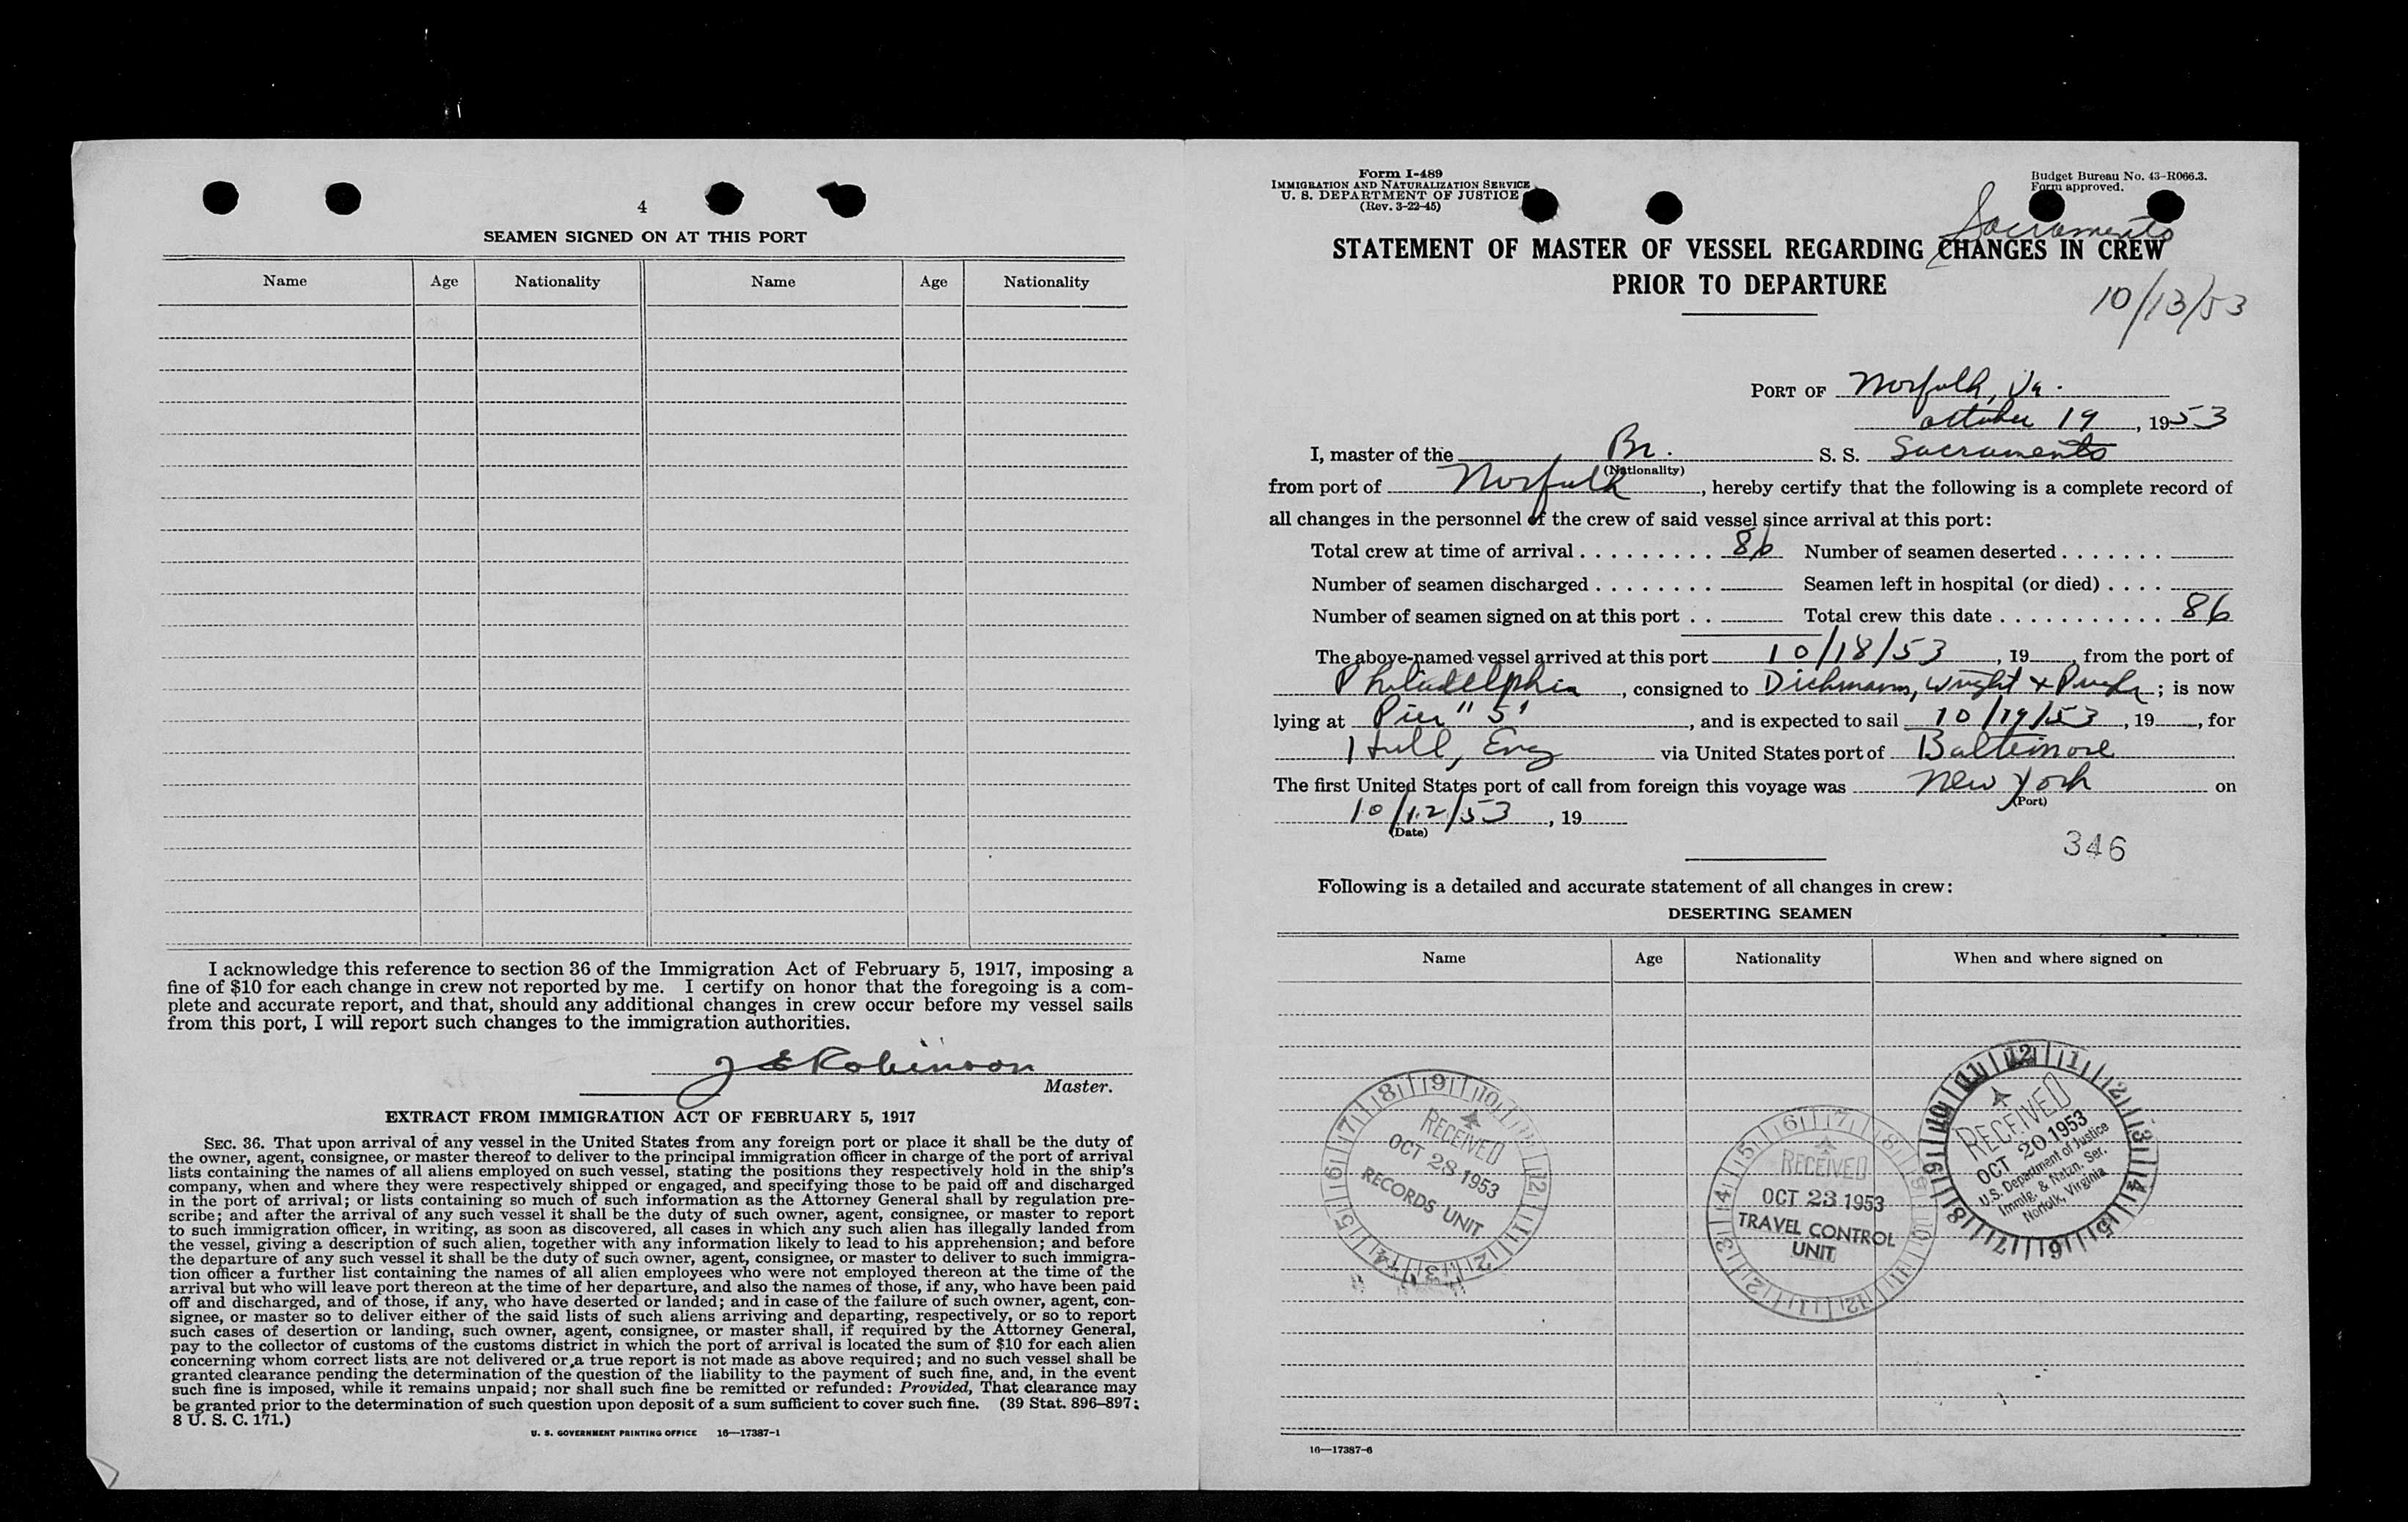 4
SEAMEN SIGNED ON AT THIS PORT
Name Age Nationality Name Age Nationality
I acknowledge this reference to section 36 of the Immigration Act of February 5, 1917, imposing a
fine of $10 for each change in crew not reported by me. I certify on honor that the foregoing is a com-
plete and accurate report, and that, should any additional changes in crew occur before my vessel sails
from this port, I will report such changes to the immigration authorities.
J E Robinson
Master.
EXTRACT FROM IMMIGRATION ACT OF FEBRUARY 5, 1917
SEC. 36. That upon arrival of any vessel in the United States from any foreign port or place it shall be the duty of
the owner, agent, consignee, or master thereof to deliver to the principal immigration officer in charge of the port of arrival
lists containing the names of all aliens employed on such vessel, stating the positions they respectively hold in the ship's
company, when and where they were respectively shipped or engaged, and specifying those to be paid off and discharged
in the port of arrival; or lists containing so much of such information as the Attorney General shall by regulation pre-
scribe; and after the arrival of any such vessel it shall be the duty of such owner, agent, consignee, or master to report
to such immigration officer, in writing, as soon as discovered, all cases in which any such alien has illegally landed from
the vessel, giving a description of such alien, together with any information likely to lead to his apprehension; and before
the departure of any such vessel it shall be the duty of such owner, agent, consignee, or master to deliver to such immigra-
tion officer a further list containing the names of all alien employees who were not employed thereon at the time of the
arrival but who will leave port thereon at the time of her departure, and also the names of those, if any, who have been paid
off and discharged, and of those, if any, who have deserted or landed; and in case of the failure of such owner, agent, con-
signee, or master so to deliver either of the said lists of such aliens arriving and departing, respectively, or so to report
such cases of desertion or landing, such owner, agent, consignee, or master shall, if required by the Attorney General,
pay to the collector of customs of the customs district in which the port of arrival is located the sum of $10 for each alien
concerning whom correct lists are not delivered or a true report is not made as above required; and no such vessel shall be
granted clearance pending the determination of the question of the liability to the payment of such fine, and, in the event
such fine is imposed, while it remains unpaid; nor shall such fine be remitted or refunded: Provided, That clearance may
be granted prior to the determination of such question upon deposit of a sum sufficient to cover such fine. (39 Stat. 896–897;
8 U. S. C. 171.)
U. S. GOVERNMENT PRINTING OFFICE 16—17387-1
Form I-489
IMMIGRATION AND NATURALIZATION SERVICE
U. S. DEPARTMENT OF JUSTICE
(Rev. 3-22-45)
Budget Bureau No. 43-R066.3.
Form approved.
Sacramento
STATEMENT OF MASTER OF VESSEL REGARDING CHANGES IN CREW
PRIOR TO DEPARTURE
10/13/53
PORT OF Norfolk, Va.
October 19, 1953
I, master of the Br. S. S. Sacramento
(Nationality)
from port of Norfolk, hereby certify that the following is a complete record of
all changes in the personnel of the crew of said vessel since arrival at this port:
Total crew at time of arrival . . . . . . . . . 86 Number of seamen deserted . . . . . . .
Number of seamen discharged . . . . . . . . Seamen left in hospital (or died) . . . .
Number of seamen signed on at this port . . Total crew this date . . . . . . . . . . . 86
The above-named vessel arrived at this port 10/18/53, 19 from the port of
Philadelphia, consigned to Dichmann, Wright & Pugh; is now
lying at Pier "5", and is expected to sail 10/19/53, 19, for
Hull, Eng via United States port of Baltimore
The first United States port of call from foreign this voyage was New York on
(Port)
10/12/53, 19
(Date)
346
Following is a detailed and accurate statement of all changes in crew:
DESERTING SEAMEN
Name Age Nationality When and where signed on
RECEIVED
OCT 28 1953
RECORDS UNIT
RECEIVED
OCT 23 1953
TRAVEL CONTROL
UNIT
RECEIVED
OCT 20 1953
U.S. Department of Justice
Immig. & Natzn. Ser.
Norfolk, Virginia
16—17387-6